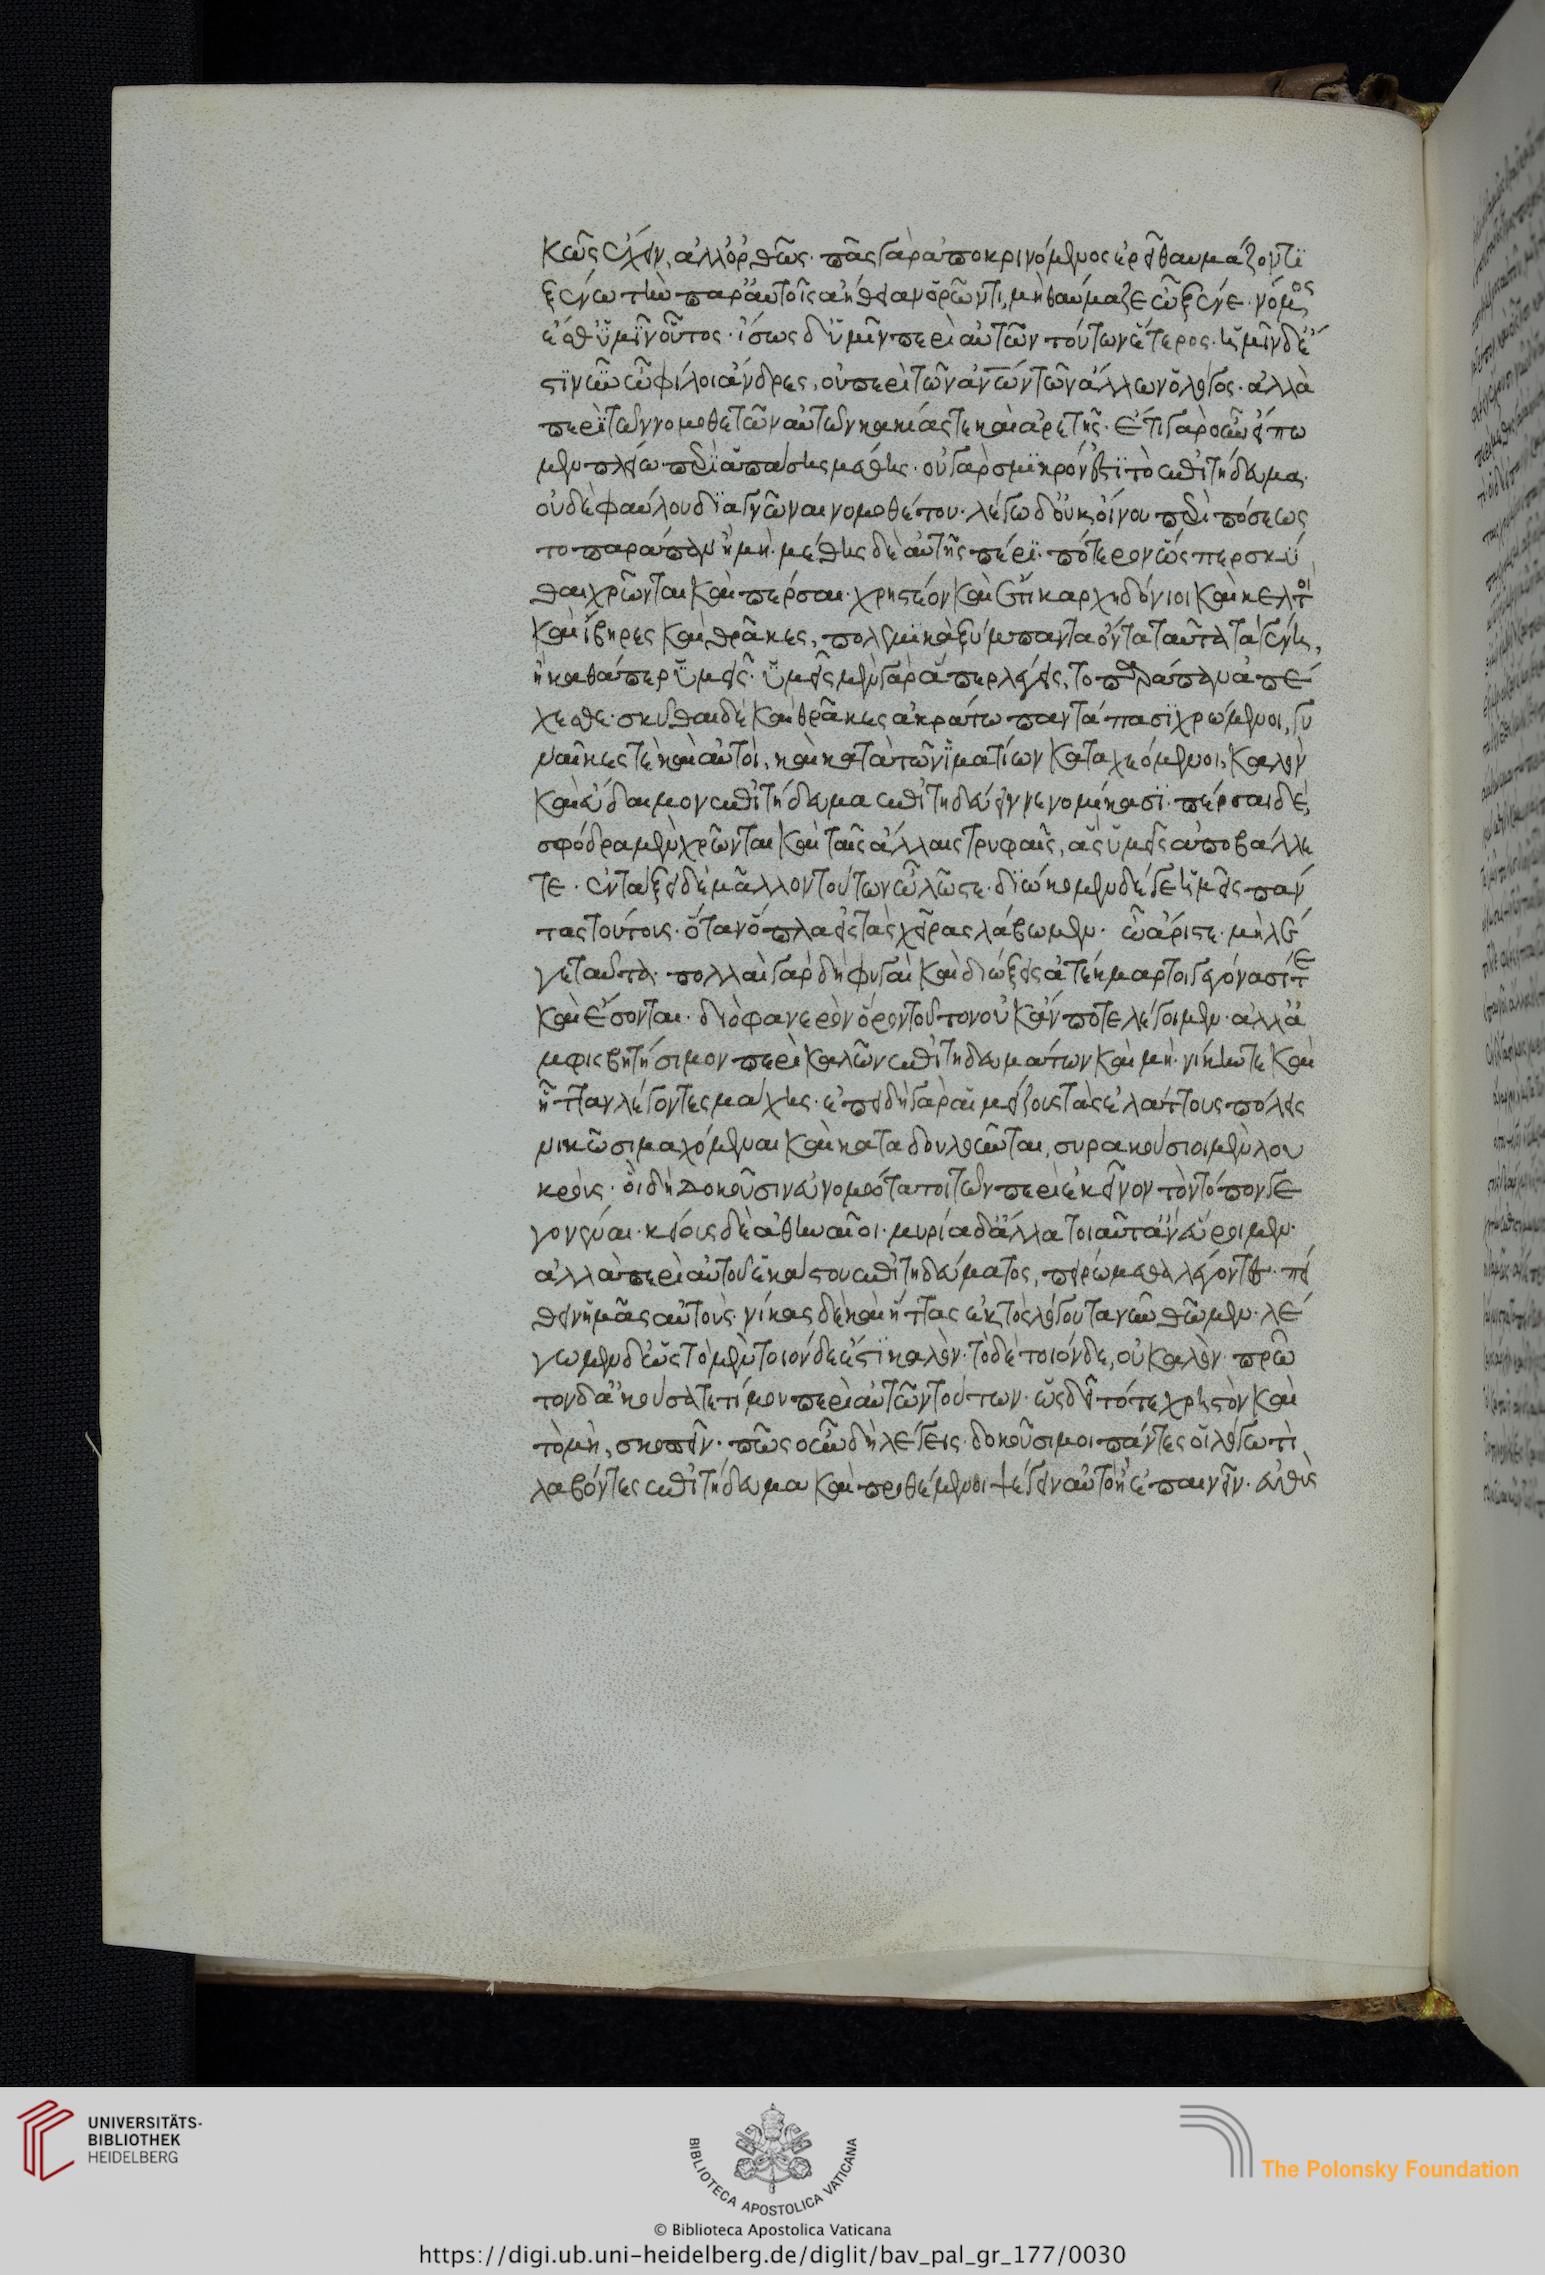 κῶς ἔχειν, ἀλλ' ὀρθῶς· πᾶς γὰρ ἀποκρινόμενος ἐρεῖ θαυμάζοντι
ξένω τὴν παρ' αὐτοῖς ἀήθειαν ὁρῶντι, μὴ θαύμαζε ὦ ξένε· νόμος
ἔσθ' ἡμῖν οὗτος· ἴσως δ' ὑμῖν περὶ αὐτῶν τούτων ἕτερος· ἡμῖν δ' ἐ
στὶ νῦν ὦ φίλοι ἄνδρες, οὐ περὶ τῶν ἀνῶν τῶν ἄλλων ὁ λόγος· ἀλλὰ
περὶ τῶν νομοθετῶν αὐτῶν κακίας τε καὶ ἀρετῆς· ἔτι γὰρ οὖν εἴπω
μεν πλείω περὶ ἁπάσης μέθης· οὐ γὰρ σμικρόν ἐστι τὸ ἐπιτήδευμα·
οὐδὲ φαύλου διαγνῶναι νομοθέτου· λέγω δ' οὐκ οἴνου περὶ πόσεως
τὸ παράπαν ἢ μή· μέθης δὲ αὐτῆς πέρι· πότερον ὥσπερ σκύ
θαι χρῶνται καὶ πέρσαι· χρηστέον καὶ ἔτι καρχηδόνιοι καὶ κελτοὶ
καὶ ἴβηρες καὶ θρᾶκες, πολεμικὰ ξύμπαντα ὄντα ταῦτα τὰ γένη,
ἢ καθάπερ ὑμεῖς· ὑμεῖς μὲν γὰρ ἅπερ λέγεις, τὸ παράπαν ἀπέ
χεσθε· σκύθαι δὲ καὶ θρᾶκες ἀκράτω παντάπασι χρώμενοι, γυ
ναῖκες τε καὶ αὐτοὶ, καὶ κατὰ τῶν ἱματίων καταχεόμενοι, καλὸν
καὶ εὔδαιμον ἐπιτήδευμα ἐπιτηδεύειν νενομίκασι· πέρσαι δὲ,
σφόδρα μὲν χρῶνται καὶ ταῖς ἄλλαις τρυφαῖς, ἃς ὑμεῖς ἀποβάλλε
τε· ἐν τάξει δὲ μᾶλλον τούτων ὦ λῷστε· διώκομεν δέ γε ἡμεῖς πάν
τας τούτους· ὅταν ὅπλα εἰς τὰς χεῖρας λάβωμεν· ὦ ἄριστε· μὴ λέ
γε ταῦτα· πολλαὶ γὰρ δὴ φυγαὶ καὶ διώξεις ἀτέκμαρτοι γεγόνασί τε
καὶ ἔσονται· διὸ φανερὸν ὅρον τοῦτον οὐκ ἄν ποτε λέγοιμεν· ἀλλὰ ἀ
μφισβητήσιμον περὶ καλῶν ἐπιτηδευμάτων καὶ μή· νίκην τε καὶ
ἧτταν λέγοντες μάχης· ἐπειδὴ γὰρ αἱ μείζους τὰς ἐλάττους πόλεις
νικῶσι μαχόμεναι καὶ καταδουλοῦνται, συρακούσιοι μὲν λο
κρούς· οἳ δὴ δοκοῦσιν εὐνομώτατοι τῶν περὶ ἐκεῖνον τὸν τόπον γε
γονέναι· κείους δὲ ἀθηναῖοι· μυρία δ' ἄλλα τοιαῦτ' ἂν εὕροιμεν·
ἀλλὰ περὶ αὐτοῦ ἑκάστου ἐπιτηδεύματος, πειρώμεθα λέγοντες· πεί
θειν ἡμᾶς αὐτούς· νίκας δὲ καὶ ἥττας ἐκτὸς λόγου τὰ νῦν θῶμεν· λέ
γωμεν δ' ὡς τὸ μὲν τοιόνδε ἐστὶ καλὸν· τὸ δὲ τοιόνδε, οὐ καλὸν· πρῶ
τον δ' ἀκούσατέ τί μου περὶ αὐτῶν τούτων· ὡς δεῖ τό τε χρηστὸν καὶ
τὸ μὴ, σκοπεῖν· πῶς οὖν δὴ λέγεις· δοκοῦσί μοι πάντες οἱ λόγω τὶ
λαβόντες ἐπιτήδευμα καὶ προθέμενοι ψέγειν αὐτὸ ἢ ἐπαινεῖν· εὐθὺς
UNIVERSITÄTS-
BIBLIOTHEK
HEIDELBERG
BIBLIOTECA APOSTOLICA VATICANA
The Polonsky Foundation
© Biblioteca Apostolica Vaticana
https://digi.ub.uni-heidelberg.de/diglit/bav_pal_gr_177/0030